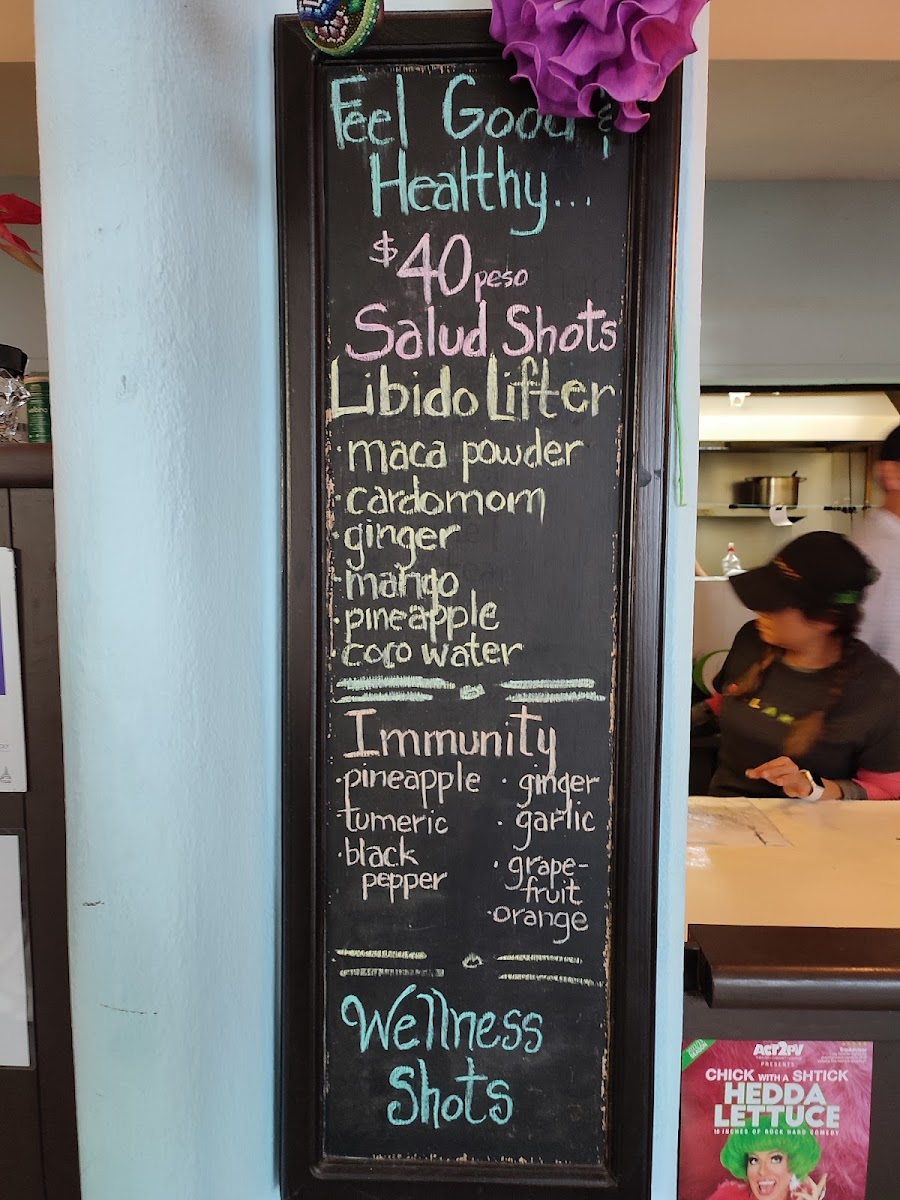 Feel Good &
Healthy...
$40 peso
Salud Shots
Libido Lifter
· maca powder
· cardomom
· ginger
· mango
· pineapple
· coco water
Immunity
· pineapple
· tumeric
· black
pepper
· ginger
· garlic
· grape-
fruit
· orange
Wellness
Shots
ACT2PV
PRESENTS
CHICK WITH A SHTICK
HEDDA
LETTUCE
10 INCHES OF ROCK HARD COMEDY